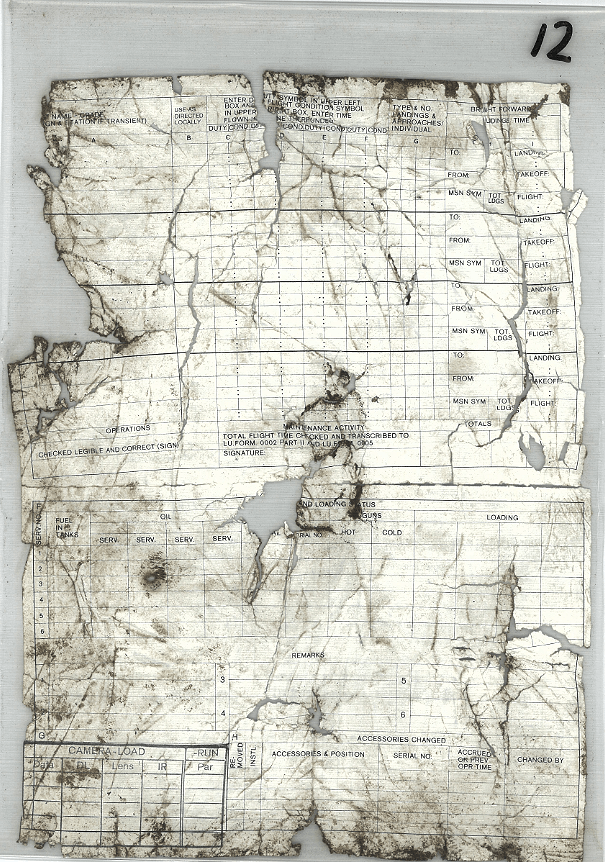 12
ENTER D    SYMBOL IN UPPER LEFT
NAME, GRADE    USE AS    BOX AND    FLIGHT CONDITION SYMBOL    TYPE & NO.    FORWARD
(TRANSIENT)    DIRECTED    IN UPPER    BOX. ENTER TIME    LANDINGS &    TIME
LOCALLY    FLOWN    APPROACHES
DUTY COND    COND DUTY COND DUTY COND    INDIVIDUAL
A    B    C    E    F    G
TO:    LANDING:
FROM:    TAKEOFF:
MSN SYM    TOT LDGS    FLIGHT:
TO:    LANDING:
FROM:    TAKEOFF:
MSN SYM    TOT. LDGS    FLIGHT:
TO:    LANDING:
FROM:    TAKEOFF:
MSN SYM    TOT. LDGS    FLIGHT:
TO:    LANDING:
FROM:    TAKEOFF:
MSN SYM    TOT. LDGS    FLIGHT:
OPERATIONS    MAINTENANCE ACTIVITY    TOTALS
TOTAL FLIGHT TIME CHECKED AND TRANSCRIBED TO
CHECKED LEGIBLE AND CORRECT (SIGN)    LU.FORM. 0002 PART-II
SIGNATURE:
ND LOADING STATUS
SERV. NO.    FUEL IN TANKS    OIL    GUNS    LOADING
SERV.    SERV.    SERV.    SERV.    SERIAL NO.    HOT    COLD
2
3
4
5
6
REMARKS
3    5
4    6
G    H    ACCESSORIES CHANGED
CAMERA-LOAD    -RUN    RE-MOVED    INSTL    ACCESSORIES & POSITION    SERIAL NO.    ACCRUED OR PREV. OPR-TIME    CHANGED BY
Data    DL    Lens    IR    Par